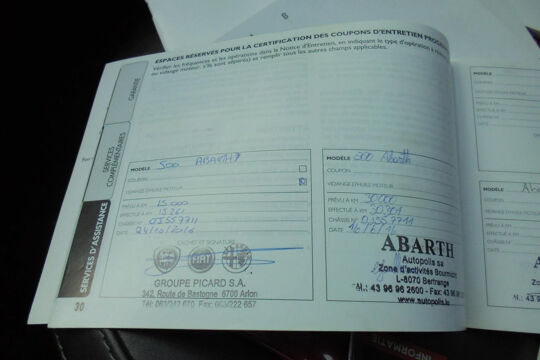 B
ESPACES RÉSERVÉS POUR LA CERTIFICATION DES COUPONS D'ENTRETIEN
Vérifier les fréquences et les opérations dans la Notice d'Entretien, en indiquant le type d'opération à
ou vidange moteur. S'ils sont séparés) et remplir tous les autres champs applicables.
GARANTIE
SERVICES COMPLÉMENTAIRES
SERVICES D'ASSISTANCE
MODÈLE 500 ABARTH
COUPON
VIDANGE D'HUILE MOTEUR
PRÉVU À KM 15.000
EFFECTUÉ À KM
CHÂSSIS N°
DATE
CACHET ET SIGNATURE
FIAT
GROUPE PICARD S.A.
342, Route de Bastogne 6700 Arlon
Tél: 063/242 670 Fax: 063/222 657
30
MODÈLE 500 Abarth
COUPON
VIDANGE D'HUILE MOTEUR
PRÉVU À KM 30000
EFFECTUÉ À KM
CHÂSSIS N°
DATE 16/6/16
ABARTH
Autopolis sa
Zone d'activités Bourmicht
L-8070 Bertrange
Tél.: 43 96 96 2600 - Fax: 43 96 96
www.autopolis.lu
MODÈLE
COUPON
VIDANGE D'HUILE MOTEUR
PRÉVU À KM
EFFECTUÉ À KM
CHÂSSIS N°
DATE
MODÈLE
COUPON
VIDANGE D'HUILE MOTEUR
PRÉVU À KM
EFFECTUÉ À KM
CHÂSSIS N°
DATE